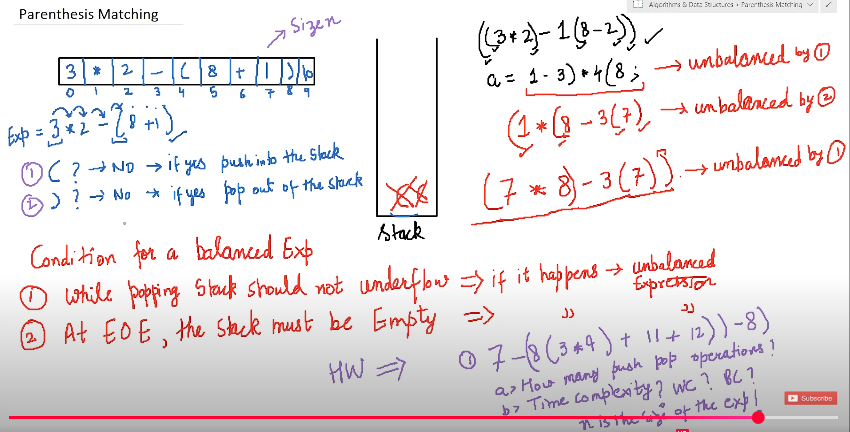 Parenthesis Matching
Algorithms & Data Structures • Parenthesis Matching
→ Size n
3 * 2 - ( 8 + 1 ) \0
0 1 2 3 4 5 6 7 8 9
Exp = 3 * 2 - (8 + 1)
① ( ? → No → if yes push into the stack
② ) ? → No → if yes pop out of the stack
Stack
((3*2)-1(8-2)) ✓
a = 1-3)*4(8; → unbalanced by ①
(1*(8-3(7) → unbalanced by ②
(7*8)-3(7)) → unbalanced by ①
Condition for a balanced Exp
① While popping Stack should not underflow ⇒ if it happens → unbalanced Expression
② At EOE, the stack must be Empty ⇒ " "
HW ⇒ ① 7-(8(3*9)+11+12))-8)
a> How many push pop operations?
b> Time complexity? WC? BC?
n is the size of the exp!
Subscribe